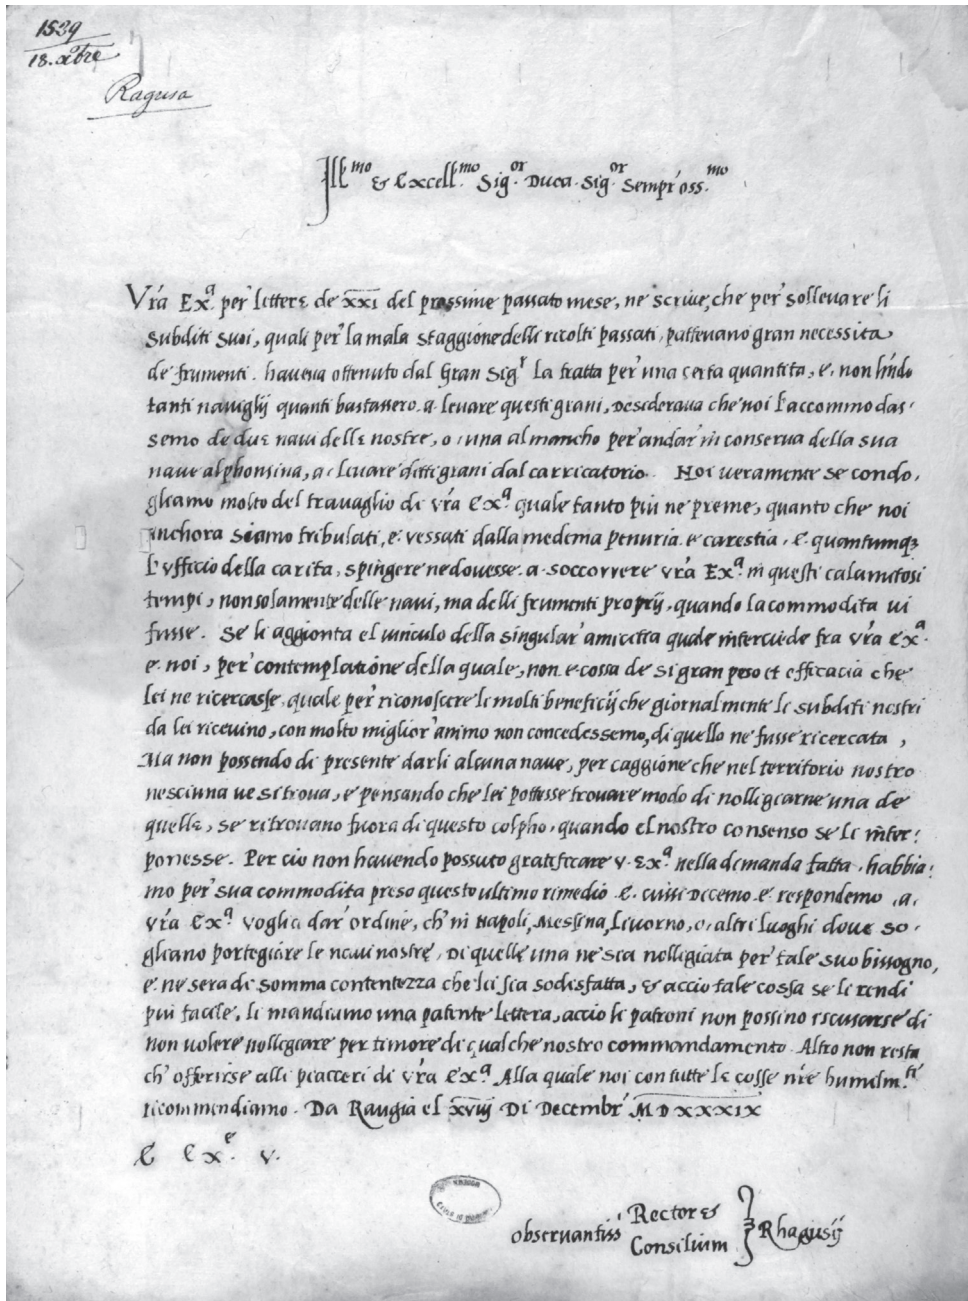 1539
18. xbre
Ragusa
Ill.mo & Excell.mo Sig.or Duca. Sig.or Sempr' oss.mo
Vr̃a Ex.a per lettere de xxi del prossime passato mese, ne scrive, che per sollevare li
subditi suoi, quali per la mala staggione delli ricolti passati, pattevano gran necessita
de frumenti. haveva ottenuto dal Gran Sig.r La tratta per una certa quantita, e, non hñdo
tanti navigly quanti bastassero. a. levare questi grani, desiderava che noi l'accommodas,
semo de due navi delle nostre, o, una al mancho per andar' in conserva della sua
nave alphonsina, a, levare ditti grani dal carricatorio. Noi veramente se condo,
gliamo molto del travaglio di vr̃a Ex.a quale tanto piu ne preme, quanto che noi
anchora siamo tribulati, e, vessati dalla medema penuria. e carestia, & quantumq3
l'ufficio della carita, spingere ne dovesse. a. soccorrere vr̃a Ex.a in questi calamitosi
tempi, non solamente delle navi, ma delli frumenti proprij, quando la commodita vi
fusse. Se li aggionta el vinculo della singular' amicitia quale intercede fra vr̃a Ex.a
e. noi, per contemplatione della quale, non e cossa de si gran peso et efficacia che
lei ne ricercasse, quale per riconoscere le molti beneficij che giornalmente li subditi nostri
da lei ricevino, con molto miglior' animo non concedessemo, di quello ne fusse ricercata,
Ma non possendo di presente darli alcuna nave, per caggione che nel territorio nostro
nesciuna ve si trova, e pensando che lei pottesse trovare modo di nolligiarne una de
quelle, se ritrovano fuora di questo colpho, quando el nostro consenso se li inter,
ponesse. Per cio non havendo possuto gratificare v. Ex.a nella demanda fatta, habbia,
mo per sua commodita preso questo ultimo rimedio & cussi decemo e respondemo .a.
vr̃a Ex.a voglia dar' ordine, ch' in Napoli, Messina, Livorno, o, altri luoghi dove so,
gliano portegiare le navi nostre, di quelle una ne sia nolligiata per tale suo bissogno,
e. ne sera di somma contentezza che lei sia sodisfatta, & accio tale cossa se li rendi
piu facile, li mandiamo una patente lettera, accio li patroni non possino iscusarse di
non volere nollegiare per timore di qualche nostro commandamento. Altro non resta
ch' offerirse alli piacceri di vr̃a Ex.a Alla quale noi con tutte le cosse nr̃e humilm.te
ricommendiamo. Da Raugia el xviij di Decembr' MDXXXIX
E Ex.e v.
observantiss' Rectores
Consilium Rhagusij